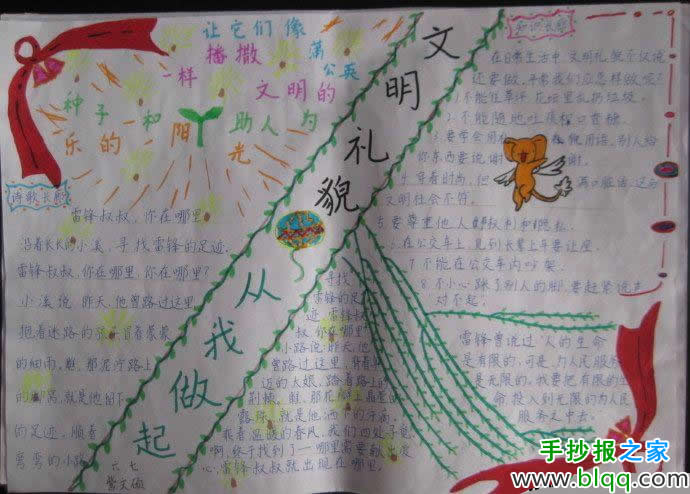 让它们像
蒲公英
一样播撒
文明的
种子和阳光
助人为
乐的
文明礼貌
从我做起
诗歌长廊
雷锋叔叔,你在哪里
沿着长长的小溪,寻找雷锋的足迹.
雷锋叔叔,你在哪里,你在哪里?
小溪说:昨天,他曾路过这里,
抱着迷路的孩子冒着蒙蒙
的细雨,瞧,那泥泞路上
的脚窝,就是他留下
的足迹,顺着
弯弯的小路
寻找
雷锋的足
迹.雷锋叔
叔,你在哪里
小路说:昨天,他
曾路过这里,背着年
迈的大娘,踏着路上的
荆棘,瞧,那花瓣上晶莹的
露珠,就是他洒下的汗滴,
乘着温暖的春风,我们四处寻觅,
啊,终于找到了——哪里需要献出爱
心,雷锋叔叔就出现在哪里.
六七
知识长廊
在日常生活中,文明礼貌不仅说
还要做,平常我们应怎样做呢?
1.不能往草坪、花坛里乱扔垃圾.
2.不能随地吐痰和口香糖.
3.要学会用礼貌用语,别人给
你东西要说谢谢.
4.穿着时尚,但满口脏话,这与
文明社会不符.
5.要尊重他人的权利和隐私.
6.在公交车上,见到长辈上车要让座.
7.不能在公交车内吵架.
8.不小心踩了别人的脚,要赶紧说声
对不起.
雷锋曾说过"人的生命
是有限的,可是,为人民服务
是无限的,我要把有限的生
命,投入到无限的为人民
服务之中去."
手抄报之家
www.blqq.com